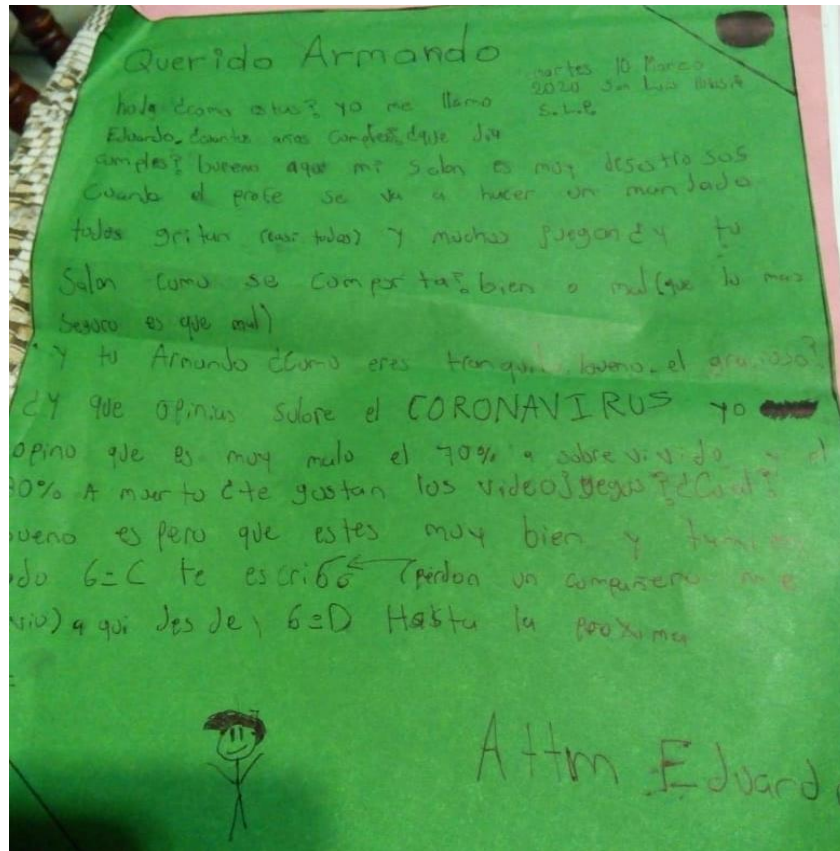 Querido Armando
martes 10 Marzo
2020 San Luis
S.L.P.
hola ¿como estas? yo me llamo
Eduardo. ¿cuantos años cumples? ¿que dia
cumples? bueno aqui mi salon es muy desastrosos
Cuando el profe se va a hacer un mandado
todos gritan (casi todos) y muchos juegan ¿y tu
Salon como se comporta? bien o mal (que lo mas
seguro es que mal)
Y tu Armando ¿Como eres tranquilo, bueno, el gracioso?
¿Y que opinas sobre el CORONAVIRUS yo
opino que es muy malo el 70% a sobrevivido y el
30% A muerto ¿te gustan los videojuegos? ¿Cual?
bueno espero que estes muy bien y
6=C te escribo (perdon un compañero me
) aqui desde 6=D Hasta la proxima
Attm Eduardo